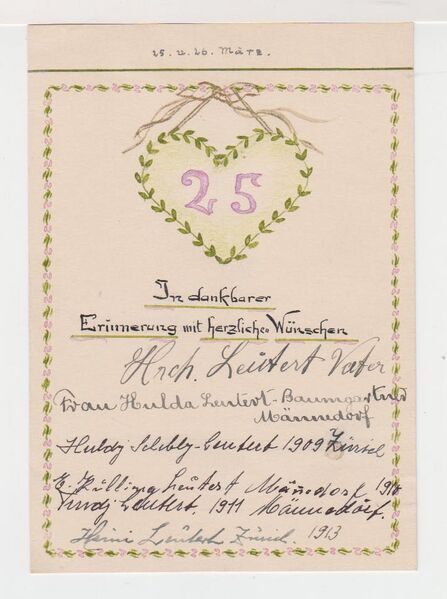 25. u. 26. März.
25
In dankbarer
Erinnerung mit herzlichen Wünschen
Hrch. Leutert Vater
Frau Hulda Leutert-Baumgartner
Männedorf
Huldy Leutert 1909 Zürich
Leutert Männedorf 1910
Leutert. 1911 Männedorf.
Heini Leutert Zürich. 1913